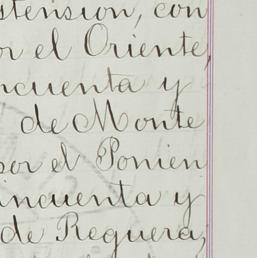 stension, con
or el Oriente,
ncuenta y
de Monte
por el Ponien
incuenta y
de Reguera,